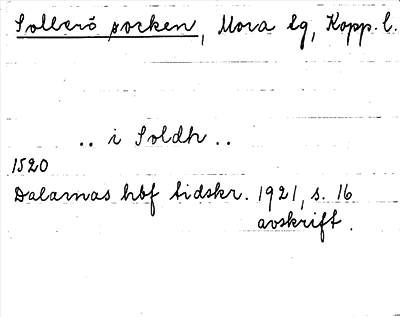 Sollerö socken, Mora lg, Kopp. l.
.. i Soldh ..
1520
Dalarnas hbf tidskr. 1921, s. 16
avskrift.